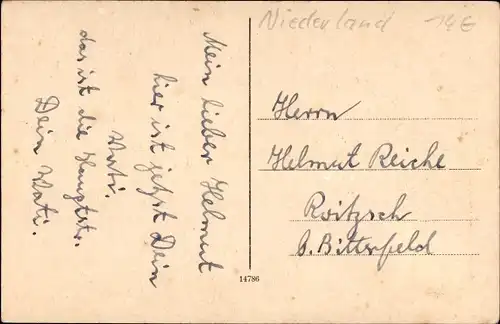 Mein lieber Helmut
hier ist jetzt Dein
Vati.
das ist die Hauptstr.
Dein Vati.
Niederland 14€
Herrn
Helmut Reiche
Roitzsch
b. Bitterfeld
14786